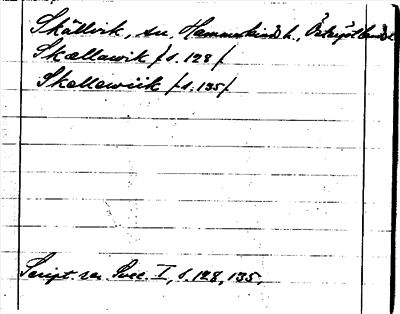 Skällvik, sn, Hammarkinds h., Östergötland
Skællawik /s. 128/
Skellewiik /s. 135/
Script. rer. Svec. I, s. 128, 135.